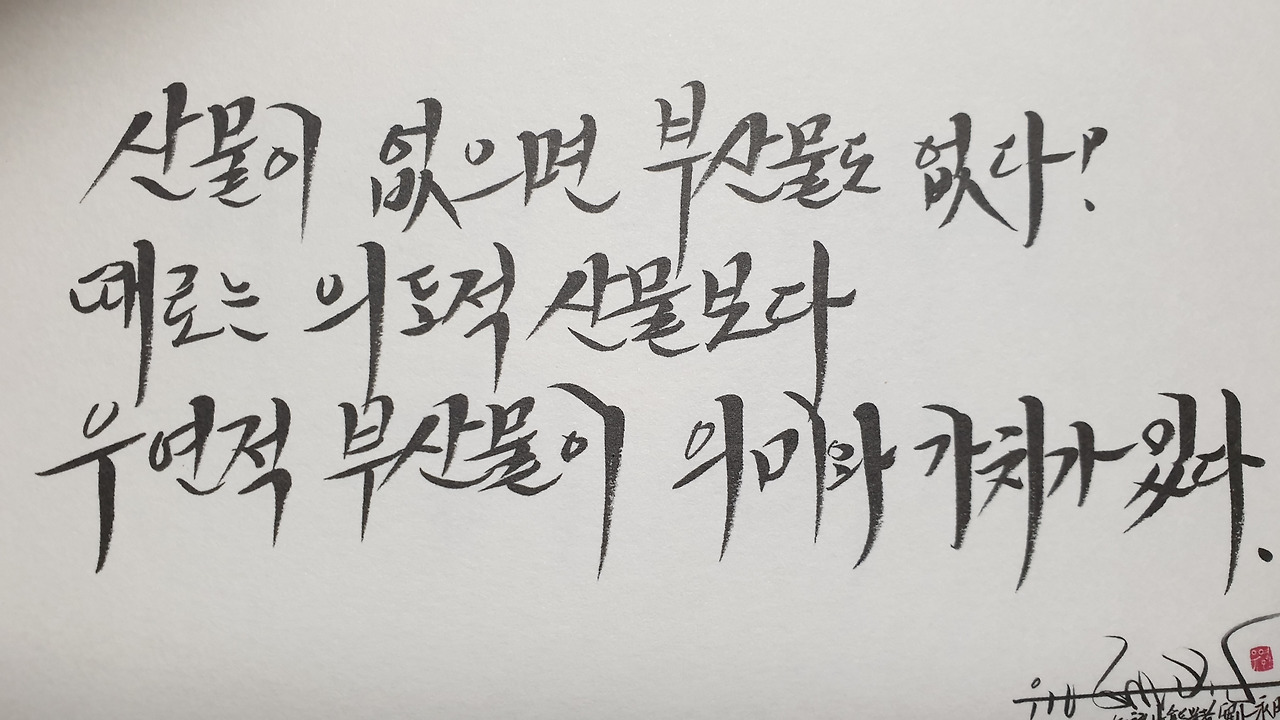 산물이 없으면 부산물도 없다!
때로는 의도적 산물보다
우연적 부산물이 의미와 가치가 있다.